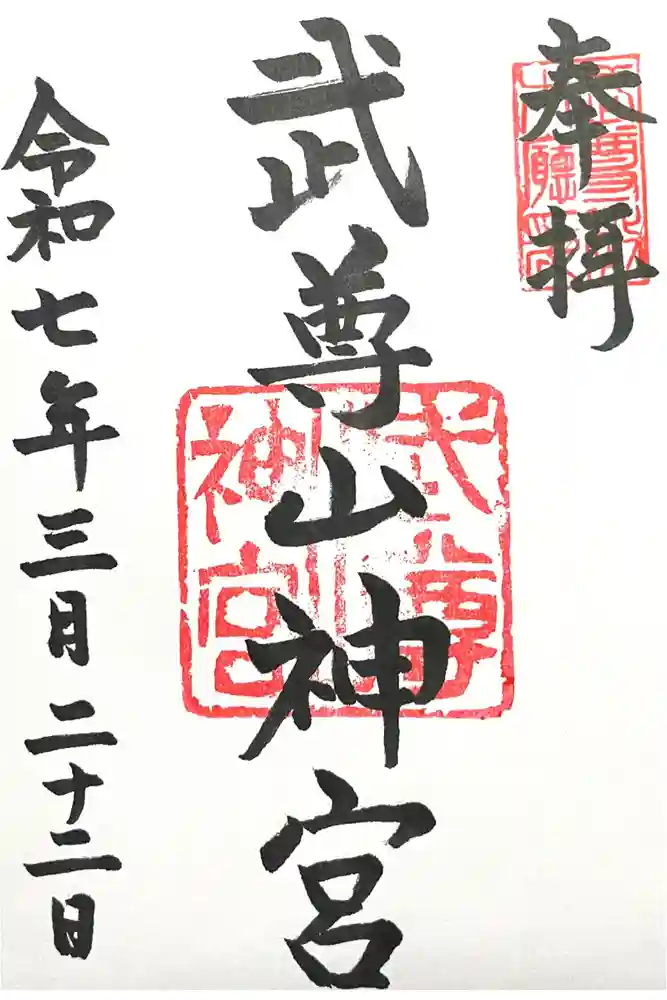 奉拝
武尊山神宮
令和七年三月二十二日
武尊
神宮